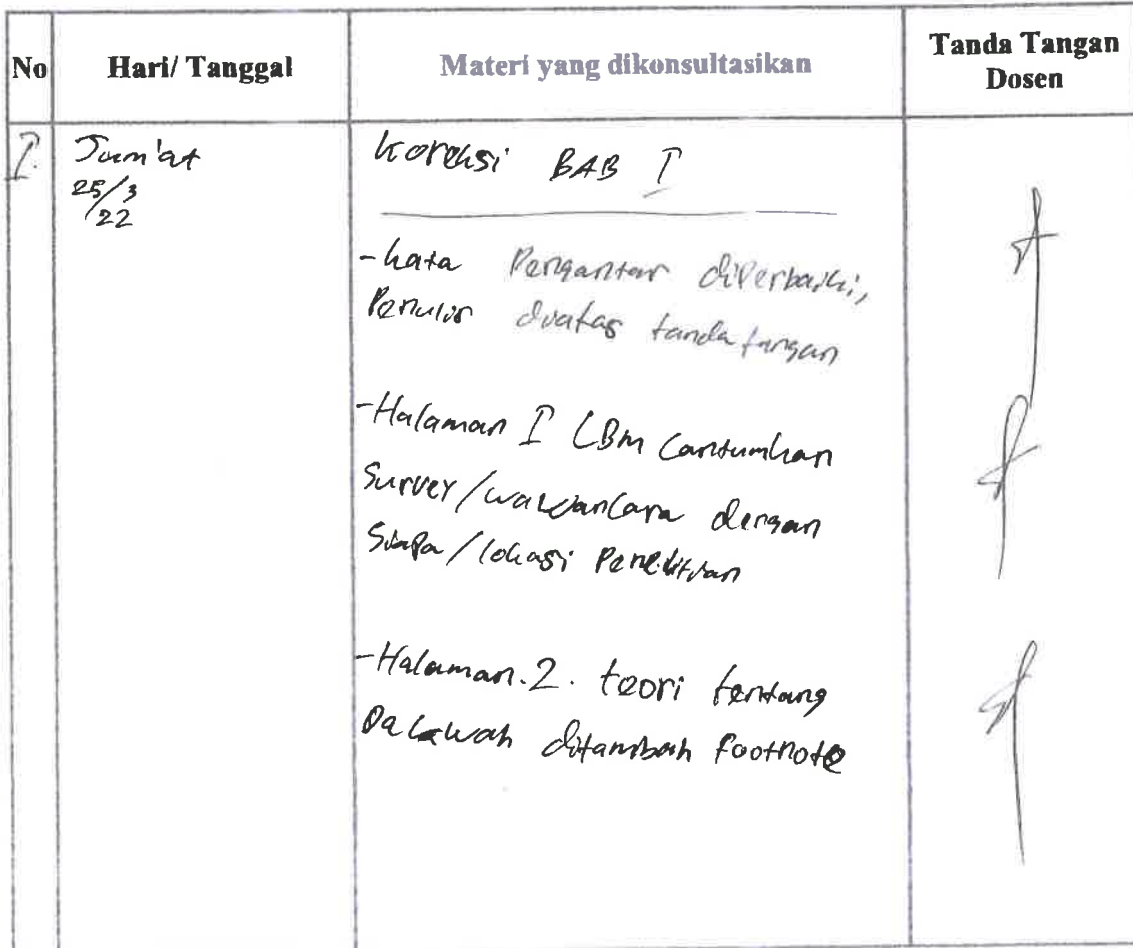 No
Hari/ Tanggal
Materi yang dikonsultasikan
Tanda Tangan
Dosen
I.
Jum'at
25/3
/22
Koreksi BAB I
- Kata Pengantar diperbaiki,
Penulis diatas tanda tangan
- Halaman I LBM Cantumkan
Survey/wawancara dengan
Siapa/lokasi Penelitian
- Halaman. 2. teori tentang
Dakwah ditambah footnote